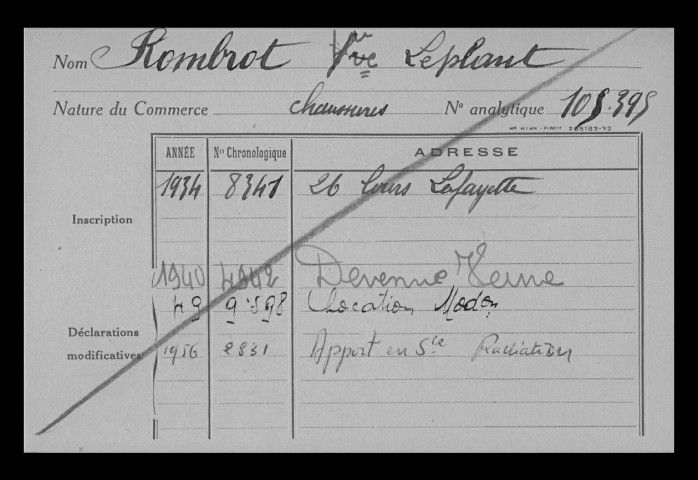 Nom Rombrot Vve Leplant
Nature du Commerce chaussures No analytique 105.395
ANNÉE No Chronologique ADRESSE
Inscription 1934 8341 26 Cours Lafayette
1940 4942 Devenue Veuve
49 9598 Location
Déclarations
modificatives 1956 2831 Apport en Sté Radiation